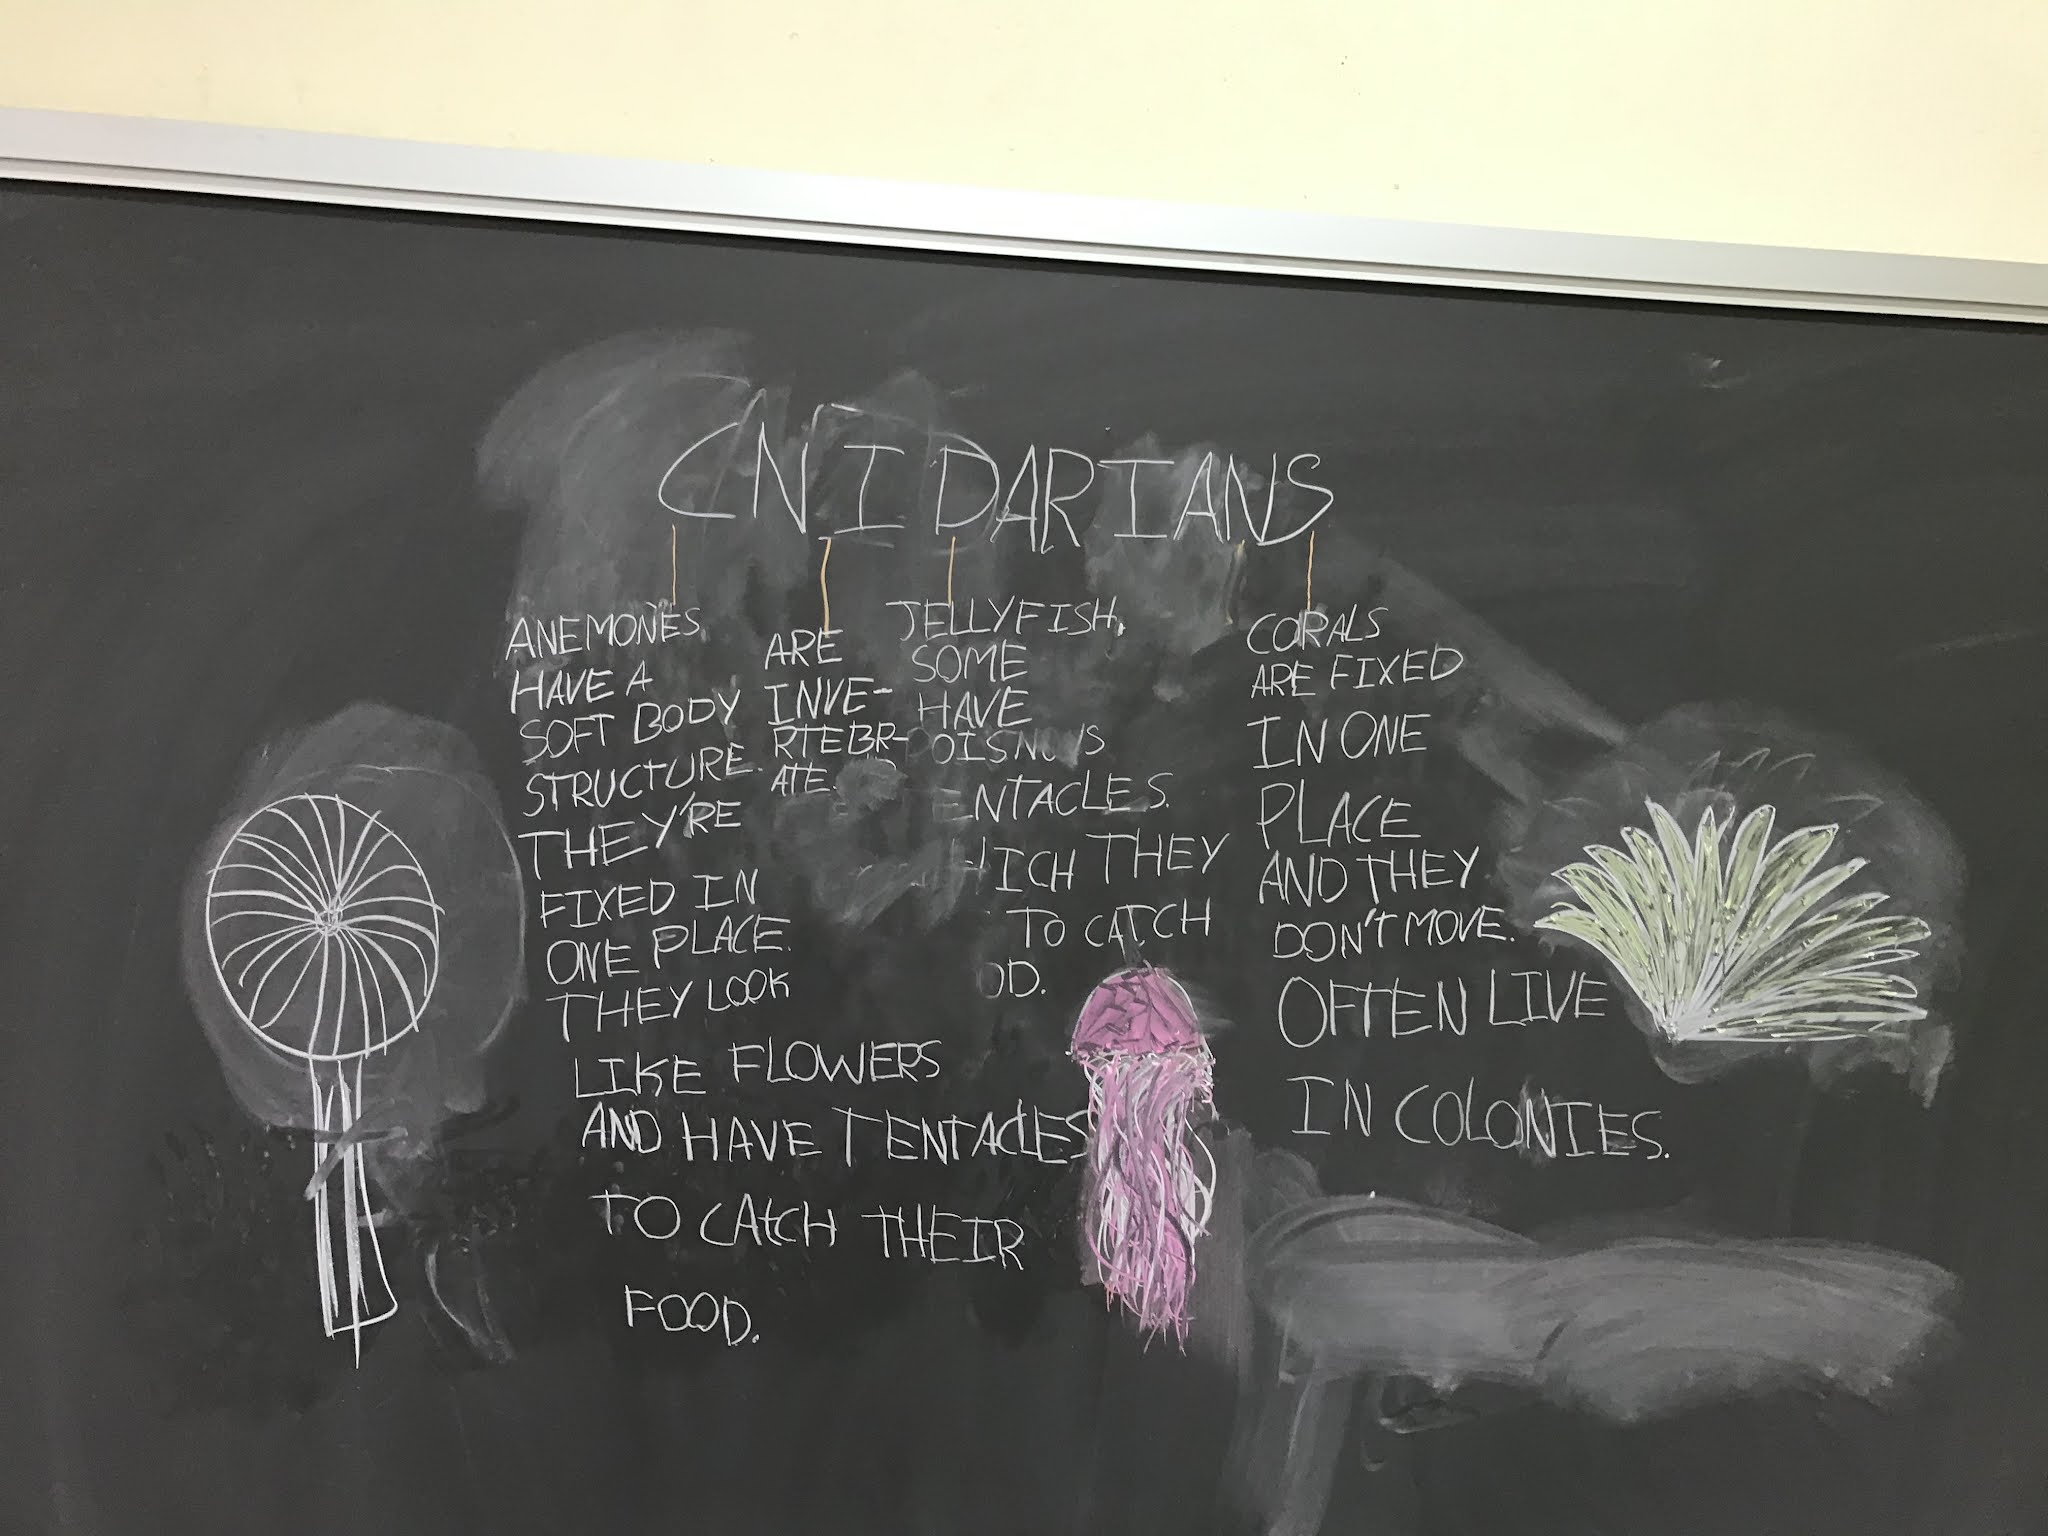 CNIDARIANS
ANEMONES
HAVE A
SOFT BODY
STRUCTURE.
THEY'RE
FIXED IN
ONE PLACE.
THEY LOOK
LIKE FLOWERS
AND HAVE TENTACLES
TO CATCH THEIR
FOOD.
ARE
INVE-
RTEBR-
ATE.
JELLYFISH,
SOME
HAVE
TENTACLES.
THEY
TO CATCH
CORALS
ARE FIXED
IN ONE
PLACE
AND THEY
DON'T MOVE.
OFTEN LIVE
IN COLONIES.